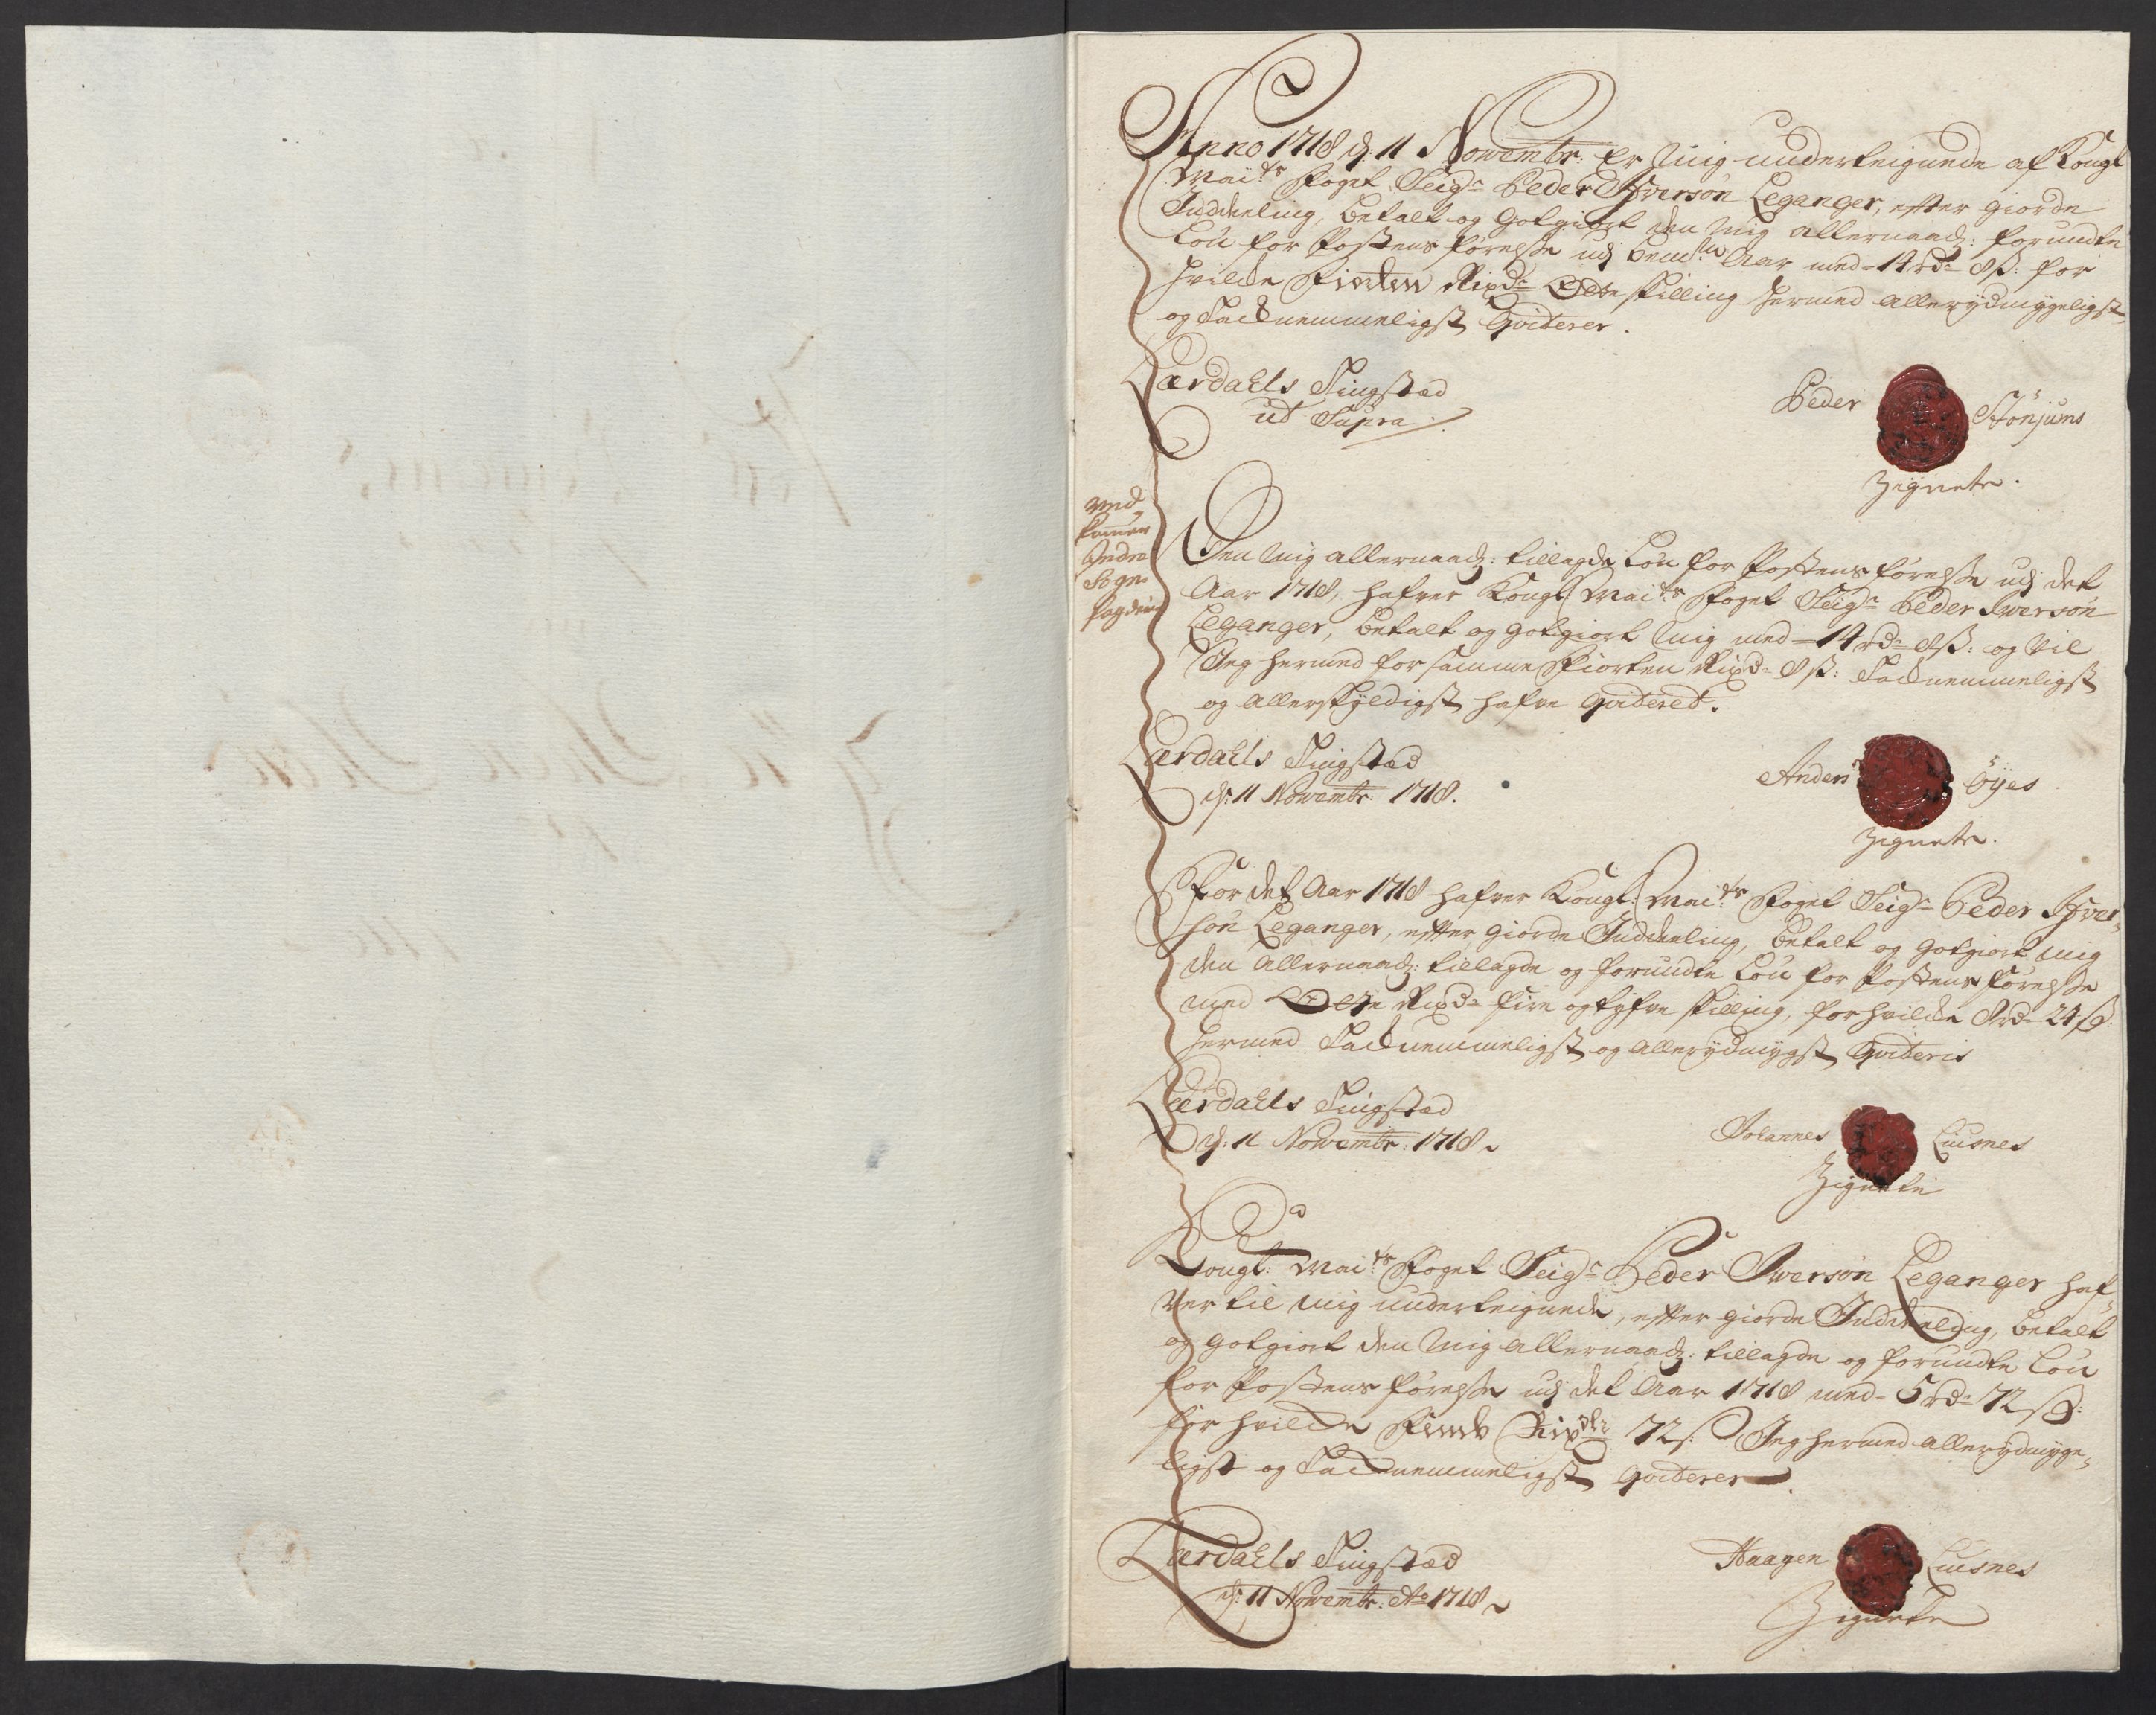 Anno 1718 d: 11 Novembr: Er Mig underteignede af Kongl
Mai:ts Foget Seigr Peder Iversøn Leganger, efter giorde
Inddeeling, betalt og Gotgiort den Mig allernaad: forundte
Løn for Postens førelsse udj bemte Aar med 14 rdr 8 s: for
hvilcke Fiorten Rixdr Otte skilling hermed allerydmygeligst
og Tacknemmeligst Qviterer.
Lærdahls Tingstæd
ut Supra
Peder Stønjums
Zignete.
Ved
kommer
Indre
Sogns
fogderie
Den Mig allernaad: tillagde Løn for Postens førelsse udj det
Aar 1718, hafver Kongl: Mai:ts Foget Seigr Peder Iversøn
Leganger, betalt og gotgiort Mig med 14 rdr 8 s: og vil
Jeg hermed for samme Fiorten Rixdr 8 s: Tacknemmeligst
og allerskyldigst hafve qviteret.
Lærdahls Tingstæd
d: 11 Novembr: 1718.
Anders Øyes
Zignete.
For det Aar 1718 hafver Kongl: Mai:ts Foget Seigr Peder Iver-
søn Leganger, efter giorde Inddeeling, betalt og gotgiort mig
den Allernaad: tillagde og forundte Løn for Postens førelsse
med Otte Rixdr fire og tyfve skilling, for hvilcke 8 rdr 24 s:
hermed Tacknemmeligst og allerydmygst Qviteris
Lærdahls Tingstæd
d: 11 Novembr: 1718
Johannes Liusnes
Zignete
Kongl: Mai:ts Foget Seigr Peder Iversøn Leganger haf-
ver til Mig underteignede, efter giorde Inddeeling, betalt
og gotgiort den Mig allernaad: tillagde og forundte Løn
for Postens førelsse udj det Aar 1718 med 5 rdr 72 s:
for hvilcke Femb Rixdlr 72 s: Jeg hermed allerydmyge-
ligst og Tacknemmeligst qviterer.
Lærdahls Tingstæd
d: 11 Novembr: Ao 1718
Haagen Liusnes
Zignete